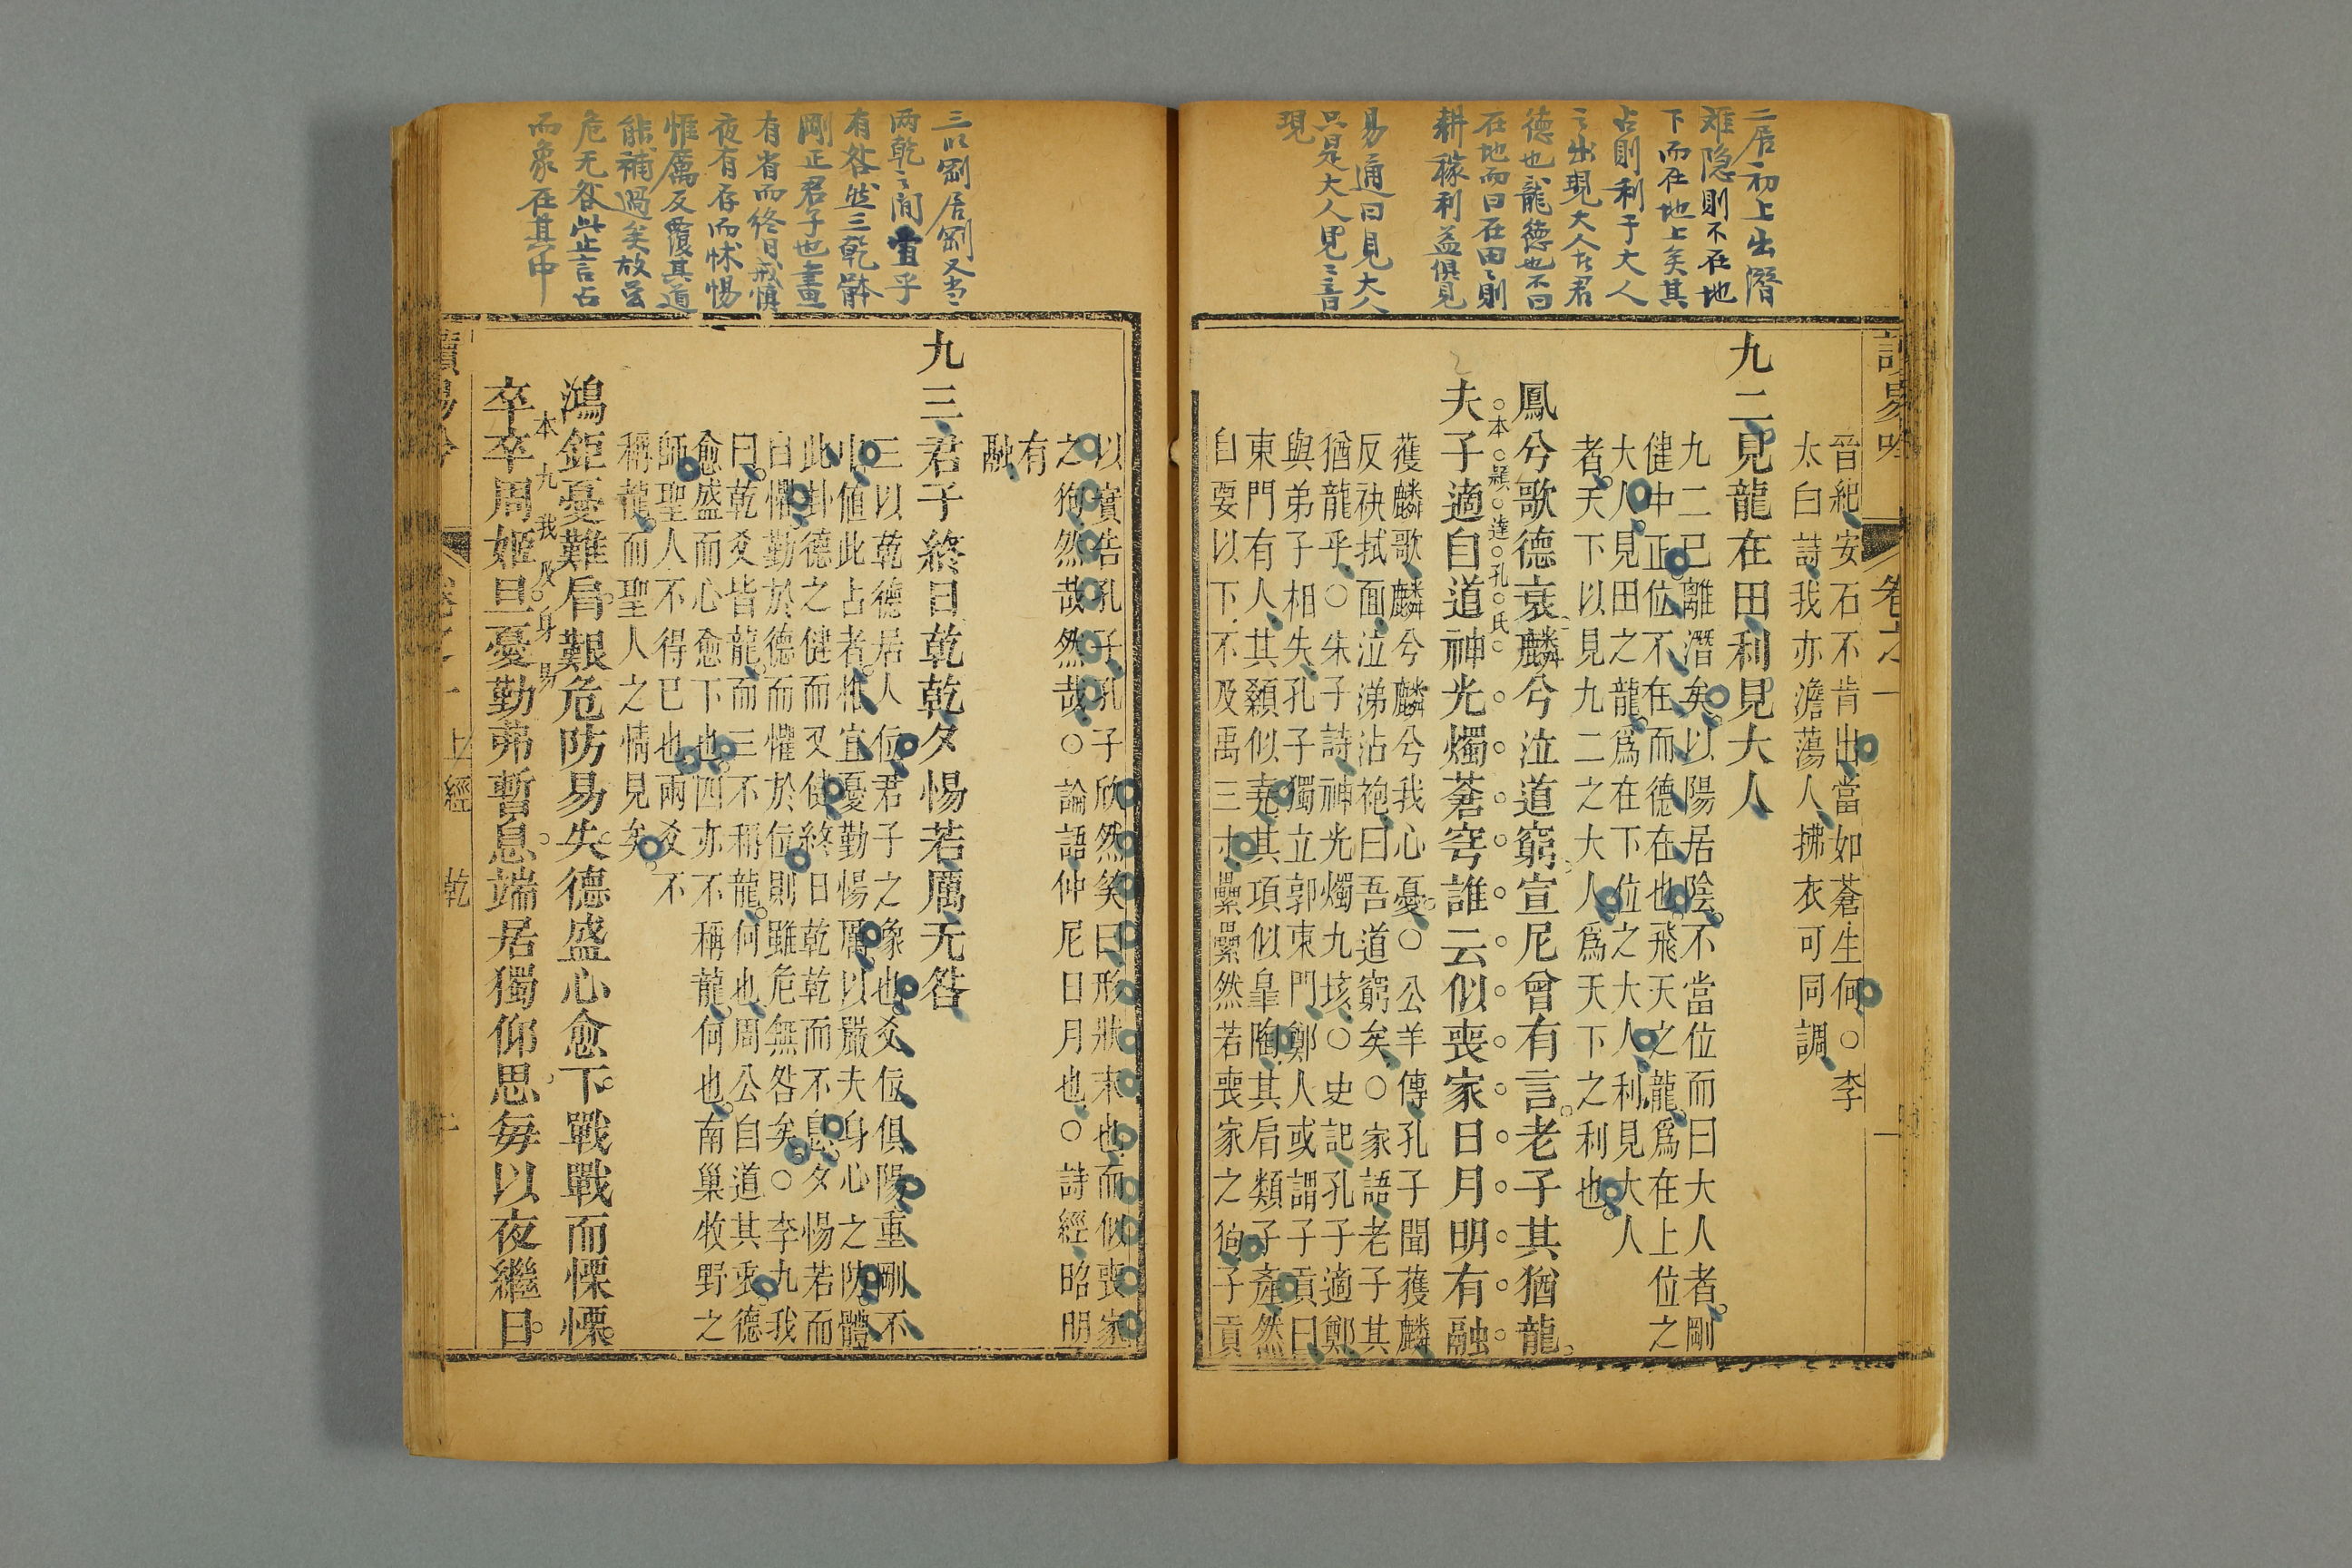 二居初上出潛
难隐則不在地
下而在地上矣其
占則利于大人
之出現大人在君
德也龍德也不曰
在地而曰在田田則
耕稼利益俱見
易通曰見大人
只是大人見之言
現
讀易吟
卷之一
晉紀安石不肯出當如蒼生何○李
太白詩我亦澹蕩人拂衣可同調
九二見龍在田利見大人
九二已離潛矣以陽居陰不當位而曰大人者剛
健中正位不在而德在也飛天之龍爲在上位之
大人見田之龍爲在下位之大人利見大人
者天下以見九二之大人爲天下之利也
鳳兮歌德衰麟兮泣道窮宣尼曾有言老子其猶龍
本題達孔氏
夫子適自道神光燭蒼穹誰云似喪家日月明有融
獲麟歌麟兮麟兮我心憂○公羊傳孔子聞獲麟
反袂拭面泣涕沾袍曰吾道窮矣○家語老子其
猶龍乎○朱子詩神光燭九垓○史記孔子適鄭
與弟子相失孔子獨立郭東門鄭人或謂子貢曰
東門有人其顙似堯其項似臯陶其肩類子產然
自要以下不及禹三寸纍纍然若喪家之狗子貢
三以剛居剛又当
两乾之間宜乎
有咎然三乾體
剛正君子也晝
有省而終日戒慎
夜有存而怵惕
惟厲反覆其道
能補過矣故雖
危无咎此止言占
而象在其中
以實告孔子孔子欣然笑曰形狀末也而似喪家
之狗然哉然哉○論語仲尼日月也○詩經昭明
有
融
九三君子終日乾乾夕惕若厲无咎
三以乾德居人位君子之象也爻位俱陽重剛不
中値此占者惟宜憂勤惕厲以嚴夫身心之防體
此卦德之健而又健終日乾乾而不息夕惕若而
自懼勤於德而懼於位則雖危無咎矣○李九我
曰乾爻皆龍而三不稱龍何也周公自道其乘德
愈盛而心愈下也四亦不稱龍何也南巢牧野之
師聖人不得已也兩爻不
稱龍而聖人之情見矣
鴻鉅憂難肩艱危防易失德盛心愈下戰戰而慄慄
本九我及身易
卒卒周姬旦憂勤弗暫息端居獨仰思每以夜繼日
讀易吟
卷之一
上經
乾
二